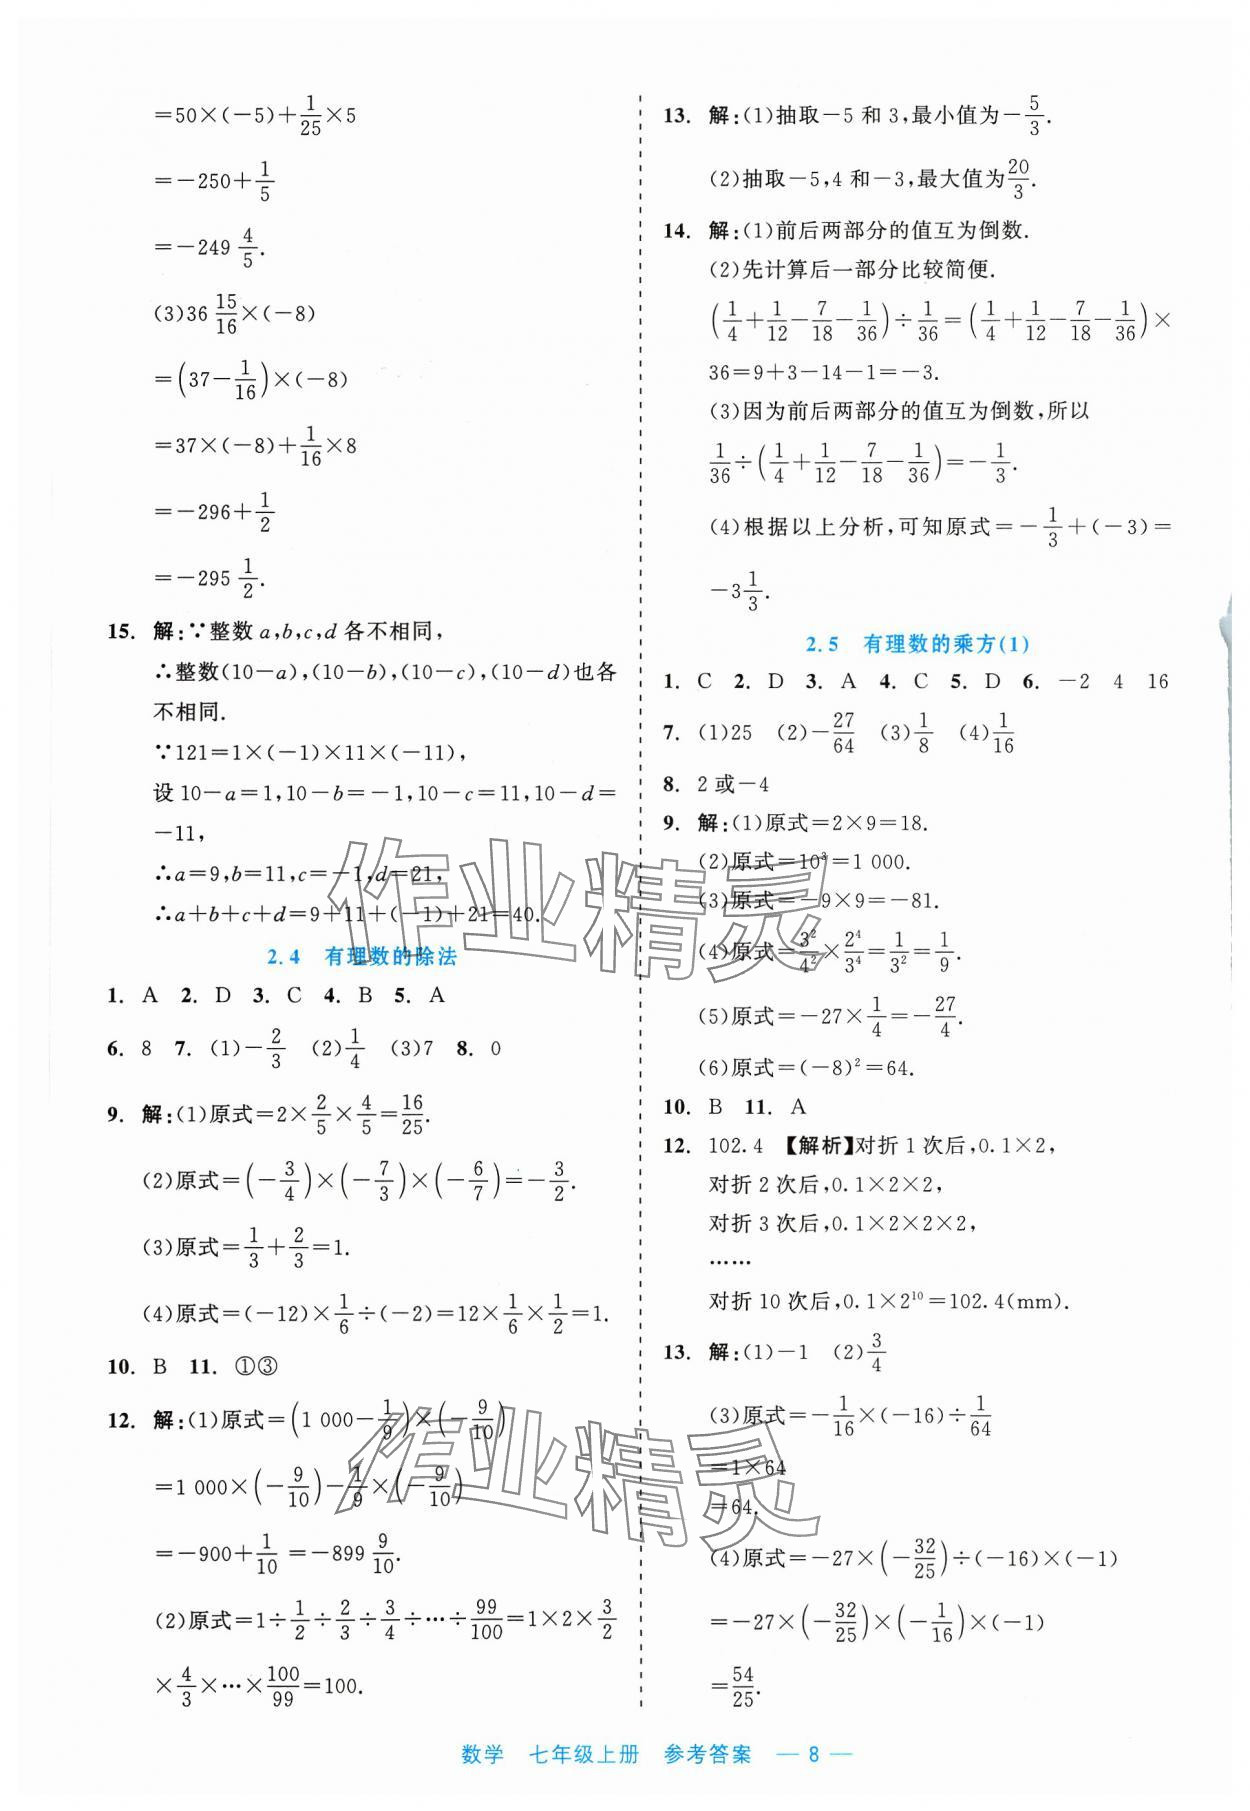 =50×(-5)+1/25×5
=-250+1/5
=-249 4/5.
(3)36 15/16×(-8)
=(37-1/16)×(-8)
=37×(-8)+1/16×8
=-296+1/2
=-295 1/2.
15. 解:∵整数 a,b,c,d 各不相同,
∴整数(10-a),(10-b),(10-c),(10-d)也各
不相同.
∵121=1×(-1)×11×(-11),
设 10-a=1,10-b=-1,10-c=11,10-d=
-11,
∴a=9,b=11,c=-1,d=21,
∴a+b+c+d=9+11+(-1)+21=40.
2.4 有理数的除法
1. A 2. D 3. C 4. B 5. A
6. 8 7. (1)-2/3 (2)1/4 (3)7 8. 0
9. 解:(1)原式=2×2/5×4/5=16/25.
(2)原式=(-3/4)×(-7/3)×(-6/7)=-3/2.
(3)原式=1/3+2/3=1.
(4)原式=(-12)×1/6÷(-2)=12×1/6×1/2=1.
10. B 11. ①③
12. 解:(1)原式=(1 000-1/9)×(-9/10)
=1 000×(-9/10)-1/9×(-9/10)
=-900+1/10=-899 9/10.
(2)原式=1÷1/2÷2/3÷3/4÷…÷99/100=1×2×3/2
×4/3×…×100/99=100.
13. 解:(1)抽取-5 和 3,最小值为-5/3.
(2)抽取-5,4 和-3,最大值为20/3.
14. 解:(1)前后两部分的值互为倒数.
(2)先计算后一部分比较简便.
(1/4+1/12-7/18-1/36)÷1/36=(1/4+1/12-7/18-1/36)×
36=9+3-14-1=-3.
(3)因为前后两部分的值互为倒数,所以
1/36÷(1/4+1/12-7/18-1/36)=-1/3.
(4)根据以上分析,可知原式=-1/3+(-3)=
-3 1/3.
2.5 有理数的乘方(1)
1. C 2. D 3. A 4. C 5. D 6. -2 4 16
7. (1)25 (2)-27/64 (3)1/8 (4)1/16
8. 2 或-4
9. 解:(1)原式=2×9=18.
(2)原式=10³=1 000.
(3)原式=-9×9=-81.
(4)原式=3²/4²×2⁴/3⁴=1/3²=1/9.
(5)原式=-27×1/4=-27/4.
(6)原式=(-8)²=64.
10. B 11. A
12. 102.4 【解析】对折 1 次后,0.1×2,
对折 2 次后,0.1×2×2,
对折 3 次后,0.1×2×2×2,
……
对折 10 次后,0.1×2¹⁰=102.4(mm).
13. 解:(1)-1 (2)3/4
(3)原式=-1/16×(-16)÷1/64
=1×64
=64.
(4)原式=-27×(-32/25)÷(-16)×(-1)
=-27×(-32/25)×(-1/16)×(-1)
=54/25.
作业精灵
作业精灵
数学 七年级上册 参考答案 — 8 —